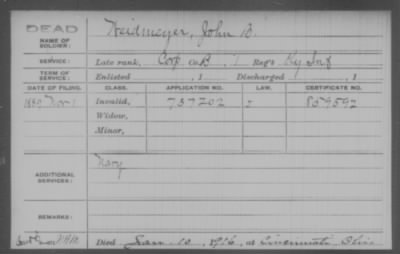 DEAD
NAME OF SOLDIER: Heidmeyer, John B.
SERVICE: Late rank, Corp Co. B, 1 Reg't Ky Inf
TERM OF SERVICE: Enlisted , 1 Discharged , 1
DATE OF FILING. CLASS. APPLICATION NO. LAW. CERTIFICATE NO.
1889 Nov 1 Invalid, 737202 859592
Widow,
Minor,
ADDITIONAL SERVICES: Navy
REMARKS:
Died Jan. 10, 1916, at Cincinnati Ohio